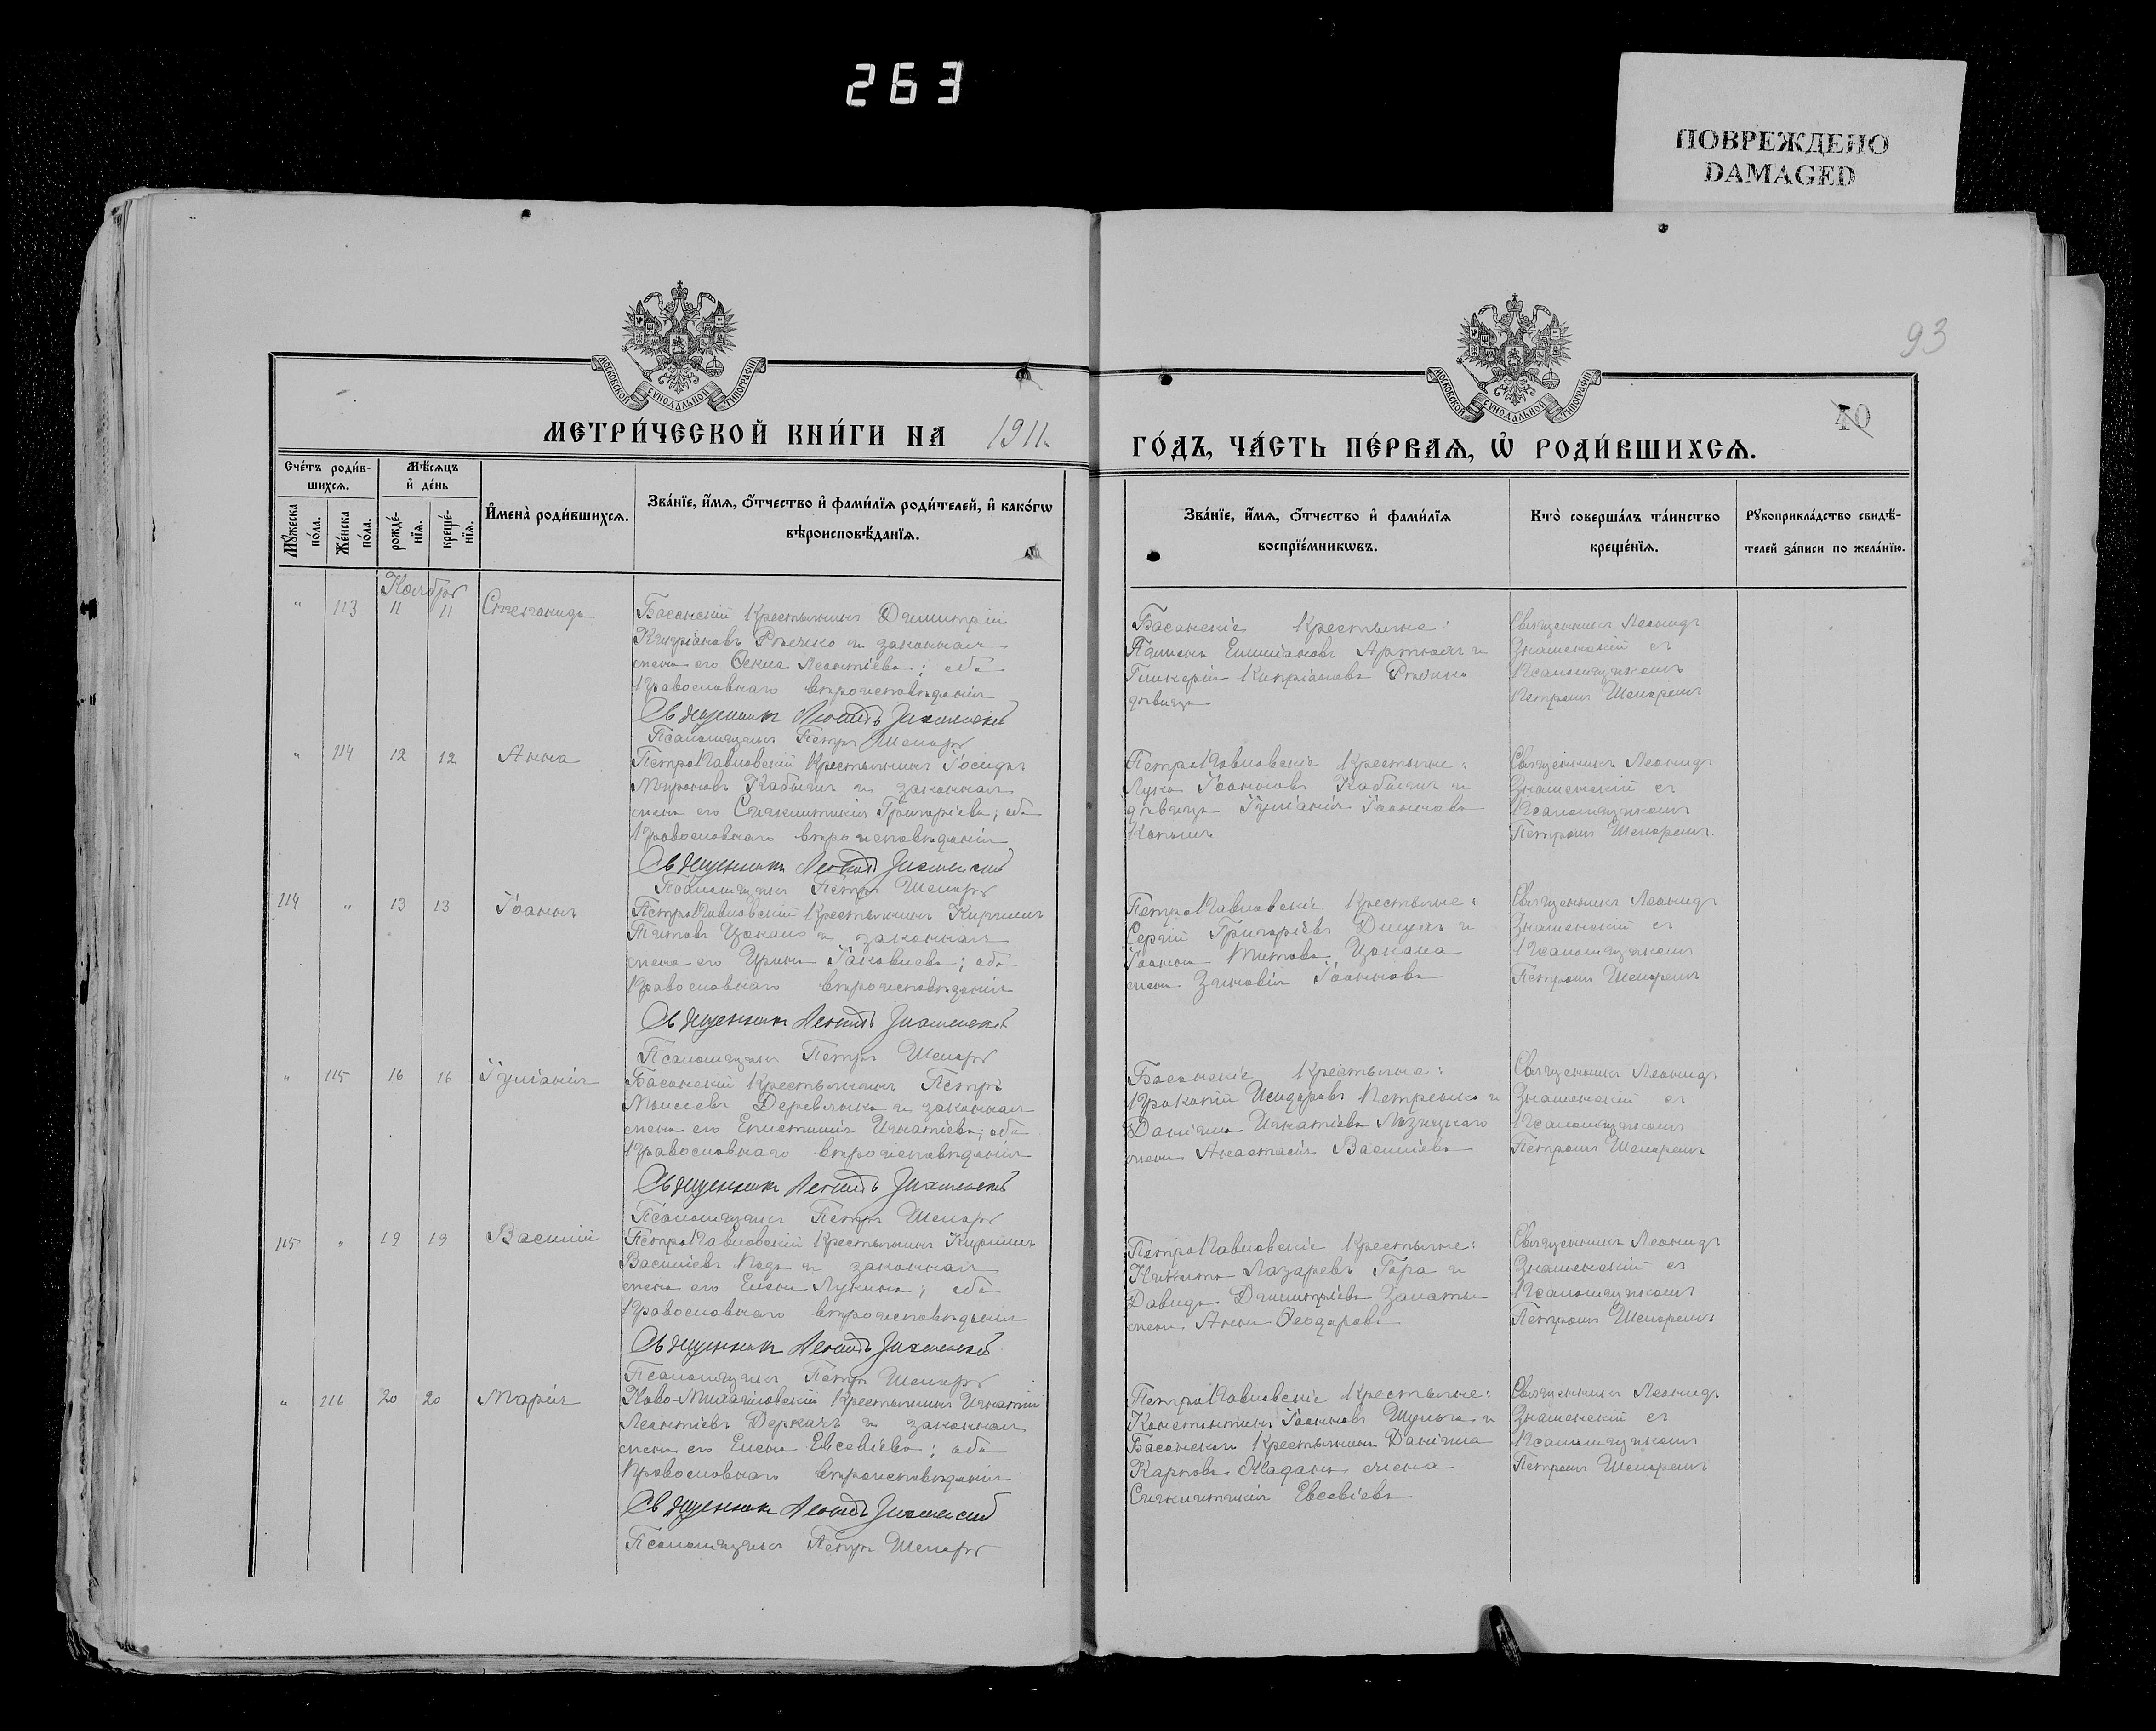 263
ПОВРЕЖДЕНО
DAMAGED
93
МОСКОВСКОЙ СѴНОДАЛЬНОЙ ТИПОГРАФІИ
МОСКОВСКОЙ СѴНОДАЛЬНОЙ ТИПОГРАФІИ
40
МЕТРИ́ЧЕСКОЙ КНИ́ГИ НА 1911.
ГО́ДЪ, ЧА́СТЬ ПЕ́РВАѦ, Ѡ҆ РОДИ́ВШИХСѦ.
Сче́тъ роди́в-
шихсѧ.
Мѣ́сѧцъ
и҆ де́нь
Мꙋ́жеска
по́ла.
Же́нска
по́ла.
рожде́-
нїѧ.
креще́-
нїѧ.
И҆мена̀ роди́вшихсѧ.
Зва́нїе, и҆́мѧ, ѻ҆́тчество и҆ фами́лїѧ роди́телей, и҆ како́гѡ
вѣроисповѣ́данїѧ.
Зва́нїе, и҆́мѧ, ѻ҆́тчество и҆ фами́лїѧ
воспрїе́мникѡвъ.
Кто̀ соверша́лъ та́инство
креще́нїѧ.
Рꙋкоприкла́дство свидѣ́-
телей за́писи по жела́нїю.
Ноябрь
" 113 11 11 Стефанида
Басанскій крестьянинъ Димитрій
Кипріановъ Рѣчко и законная
жена его Ѳекла Леонтіева; оба
Православнаго вѣроисповѣданія
Священникъ Леонидъ Знаменскій
Псаломщикъ Петръ
Басанскіе крестьяне:
и
Гликерія Кипріанова
дѣвица
Священникъ Леонидъ
Знаменскій съ
Псаломщикомъ
Петромъ
" 114 12 12 Анна
ПетроПавловскій крестьянинъ Іосифъ
Мироновъ и законная
жена его Синклитикія Григоріева; оба
Православнаго вѣроисповѣданія
Священникъ Леонидъ Знаменскій
Псаломщикъ Петръ
ПетроПавловскіе крестьяне:
Лука Іоанновъ и
дѣвица Іуліанія Іоаннова
Священникъ Леонидъ
Знаменскій съ
Псаломщикомъ
Петромъ
114 " 13 13 Іоаннъ
ПетроПавловскій крестьянинъ Кириллъ
Титовъ Цокало и законная
жена его Ирина Іаковлева; оба
Православнаго вѣроисповѣданія
Священникъ Леонидъ Знаменскій
Псаломщикъ Петръ
ПетроПавловскіе крестьяне:
Сергій Григоріевъ и
Іоанна Титова Цокала
жена Зиновія Іоаннова
Священникъ Леонидъ
Знаменскій съ
Псаломщикомъ
Петромъ
" 115 16 16 Іуліанія
Басанскій крестьянинъ Петръ
Моисеевъ Деревянко и законная
жена его Епистимія Игнатіева; оба
Православнаго вѣроисповѣданія
Священникъ Леонидъ Знаменскій
Псаломщикъ Петръ
Басанскіе крестьяне:
Прокопій Исидоровъ Петренко и
Даніила Игнатіева
жена Анастасія Василіева
Священникъ Леонидъ
Знаменскій съ
Псаломщикомъ
Петромъ
115 " 19 19 Василій
ПетроПавловскій крестьянинъ Кириллъ
Василіевъ и законная
жена его Елена Лукина; оба
Православнаго вѣроисповѣданія
Священникъ Леонидъ Знаменскій
Псаломщикъ Петръ
ПетроПавловскіе крестьяне:
Никита Лазаревъ Гора и
Давида Димитріева
жена Анна Ѳеодорова
Священникъ Леонидъ
Знаменскій съ
Псаломщикомъ
Петромъ
" 116 20 20 Марія
Ново-Михайловскій крестьянинъ Игнатій
Леонтіевъ Деркачъ и законная
жена его Елена Евсевіева; оба
Православнаго вѣроисповѣданія
Священникъ Леонидъ Знаменскій
Псаломщикъ Петръ
ПетроПавловскіе крестьяне:
Константинъ Іоанновъ Шульга и
Басанскаго крестьянина Даніила
Карпова Жадана жена
Синклитикія Евсевіева
Священникъ Леонидъ
Знаменскій съ
Псаломщикомъ
Петромъ